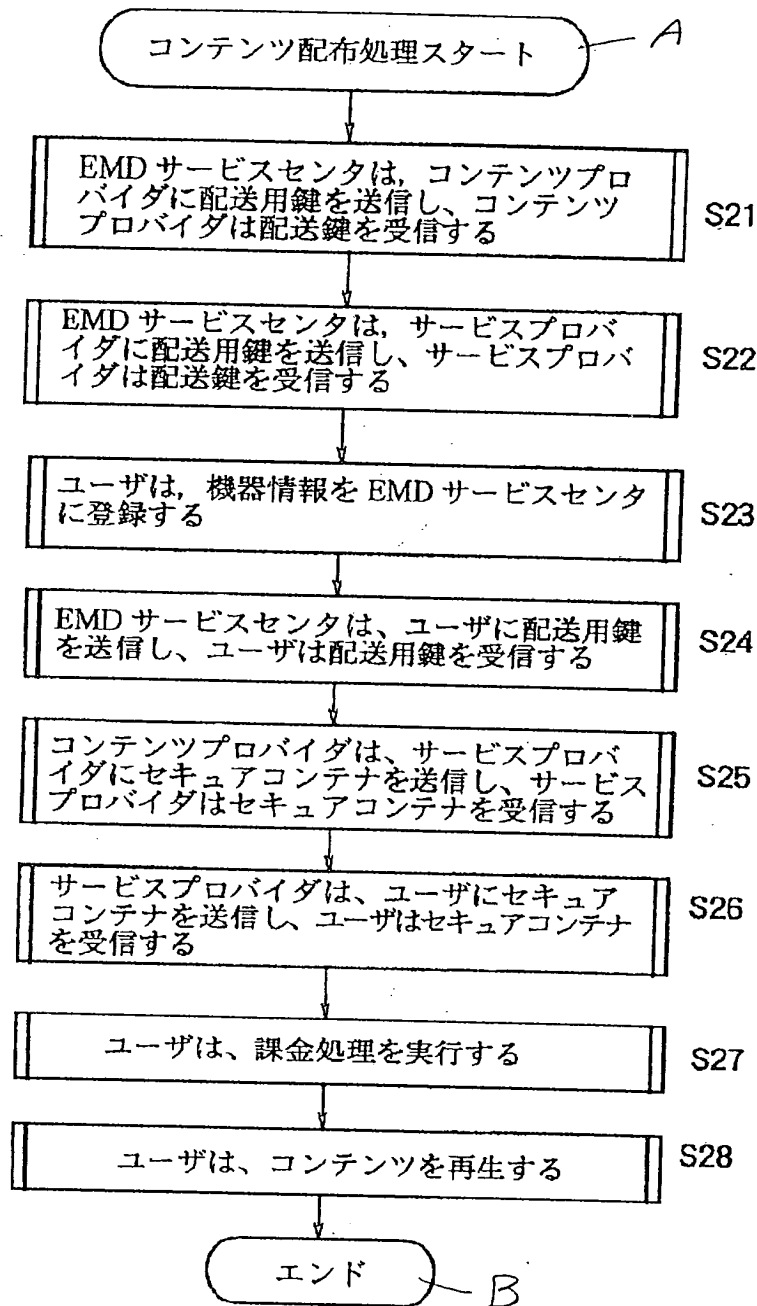 コンテンツ配布処理スタート
A
EMD サービスセンタは, コンテンツプロ
バイダに配送用鍵を送信し、コンテンツ
プロバイダは配送鍵を受信する
S21
EMD サービスセンタは, サービスプロバ
イダに配送用鍵を送信し、サービスプロバ
イダは配送鍵を受信する
S22
ユーザは, 機器情報を EMD サービスセンタ
に登録する
S23
EMD サービスセンタは、ユーザに配送用鍵
を送信し、ユーザは配送用鍵を受信する
S24
コンテンツプロバイダは、サービスプロバ
イダにセキュアコンテナを送信し、サービス
プロバイダはセキュアコンテナを受信する
S25
サービスプロバイダは、ユーザにセキュア
コンテナを送信し、ユーザはセキュアコンテナ
を受信する
S26
ユーザは、課金処理を実行する
S27
ユーザは、コンテンツを再生する
S28
エンド
B